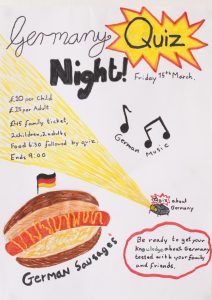 Germany Quiz
Night!
Friday 15th March.
£10 per Child
per Adult
£45 family ticket,
2children, 2adults.
Food 6:30 followed by quiz.
Ends 9:00
German Music
Quiz about
Germany
German Sausages
Be ready to get your
knowledge about Germany
tested with your family
and friends.